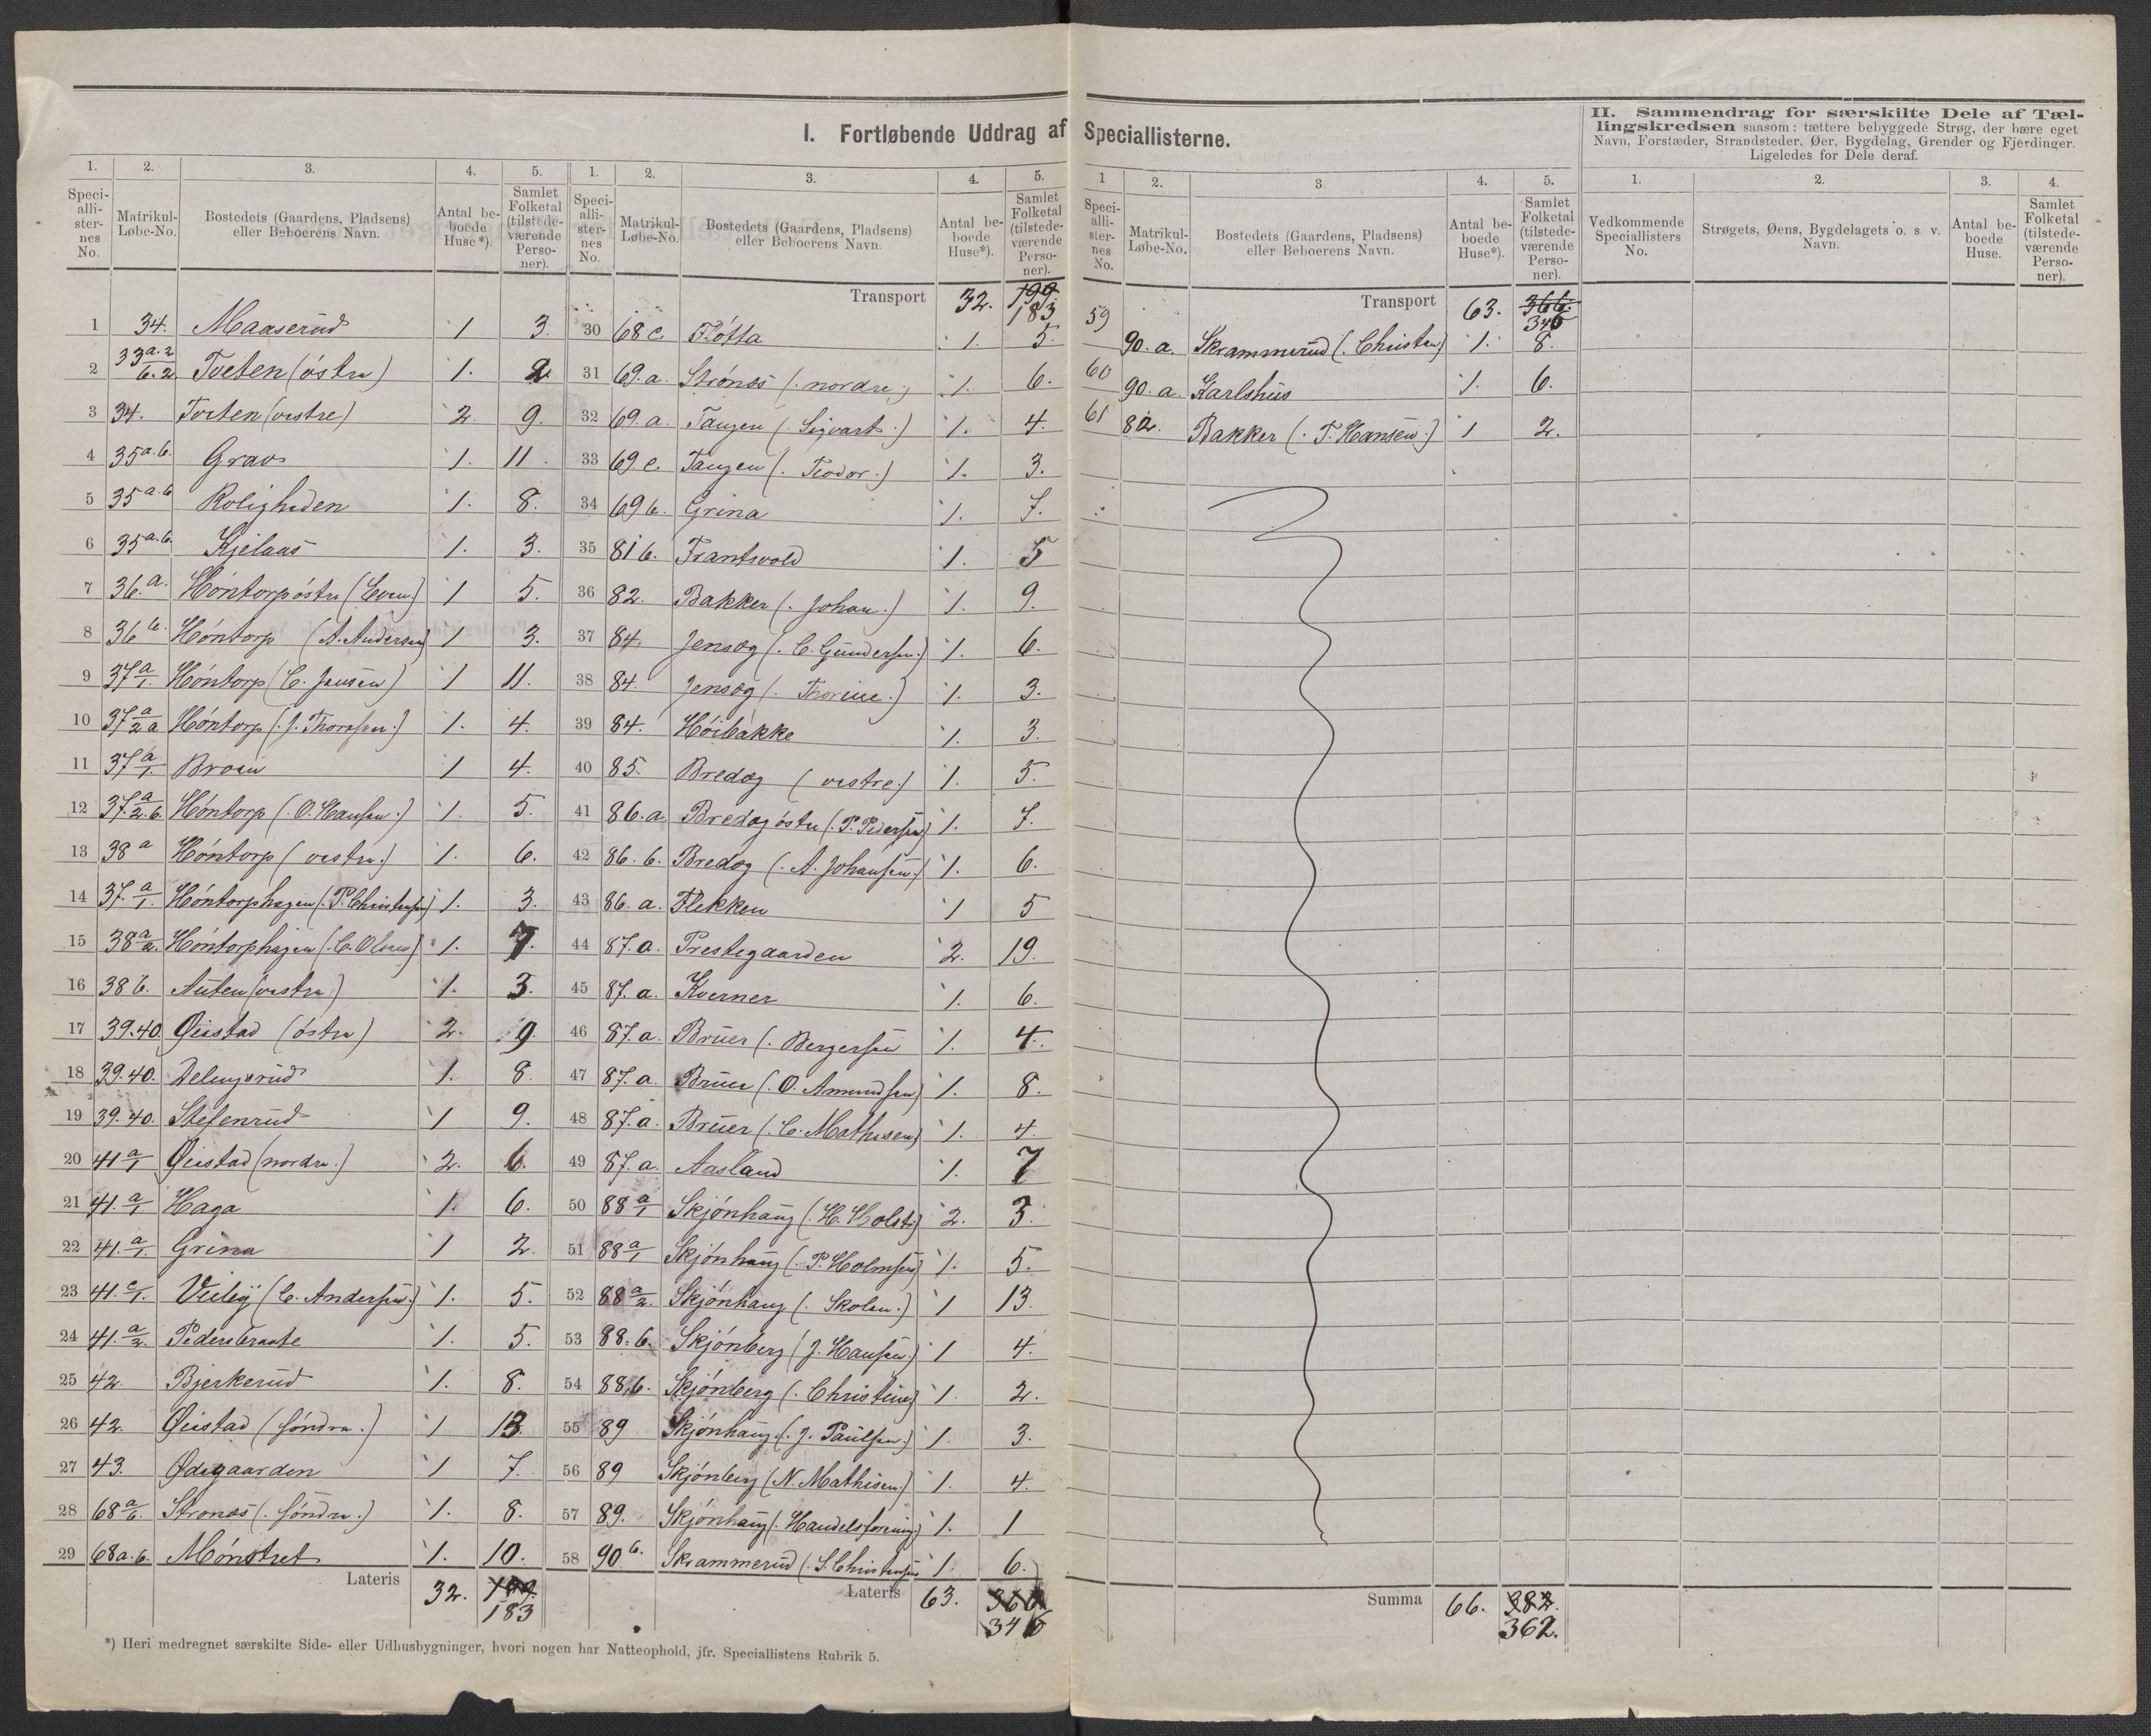 I. Fortløbende Uddrag af Speciallisterne.
II. Sammendrag for særskilte Dele af Tæl-
lingskredsen saasom: tættere bebyggede Strøg, der bære eget
Navn, Forstæder, Strandsteder, Øer, Bygdelag, Grender og Fjerdinger.
Ligeledes for Dele deraf.
1. 2. 3. 4. 5.
Speci-alli-ster-nes No. Matrikul-Løbe-No. Bostedets (Gaardens, Pladsens) eller Beboerens Navn. Antal be-boede Huse*). Samlet Folketal (tilstede-værende Perso-ner).
1 34. Maaserud 1 3.
2 33 a.2 b.2 Tveten (östre) 1. 2
3 34. Tveten (vestre) 2. 9.
4 35 a.b. Grav 1. 11.
5 35 a.b Roligheden 1. 8.
6 35 a.b. Kjelaas 1. 3.
7 36.a. Höntorp östre (Even) 1 5.
8 36 b. Höntorp (A. Andersen) 1 3.
9 37 a/1. Höntorp (C. Jensen) 1 11.
10 37 a/2 a Höntorp (. J. Thoresen.) 1. 4.
11 37 a/1. Broen 1 4.
12 37. a/2.b. Höntorp (. O. Hansen.) 1. 5.
13 38 a Höntorp (vestre.) 1. 6.
14 37. a/1. Höntorphagen (. P. Christensen) 1. 3.
15 38 a/2. Höntorphagen (. C. Olsen) 1. 7.
16 38 b. Auten (vestre) 1. 3.
17 39.40. Öistad (östre) 2. 9.
18 39.40. Delingsrud 1. 8.
19 39.40. Stefenrud 1 9.
20 41 a/1 Öistad (nordre.) 2. 6.
21 41. a/1 Haga 1. 6.
22 41. a/1. Grina 1 2.
23 41. c/1. Veiby (C. Andersen.) 1. 5.
24 41. a/2. Pedersbraate 1. 5.
25 42. Bjerkerud 1. 8.
26 42. Öistad (söndre.) 1 13.
27 43. Ödegaarden 1 7.
28 68 a/b. Strönæs (. söndre.) 1. 8.
29 68 a.b. Mönstret 1. 10.
Lateris 32. 199. 183
*) Heri medregnet særskilte Side- eller Udhusbygninger, hvori nogen har Natteophold, jfr. Speciallistens Rubrik 5.
1. 2. 3. 4. 5.
Speci-alli-ster-nes No. Matrikul-Løbe-No. Bostedets (Gaardens, Pladsens) eller Beboerens Navn. Antal be-boede Huse*). Samlet Folketal (tilstede-værende Perso-ner).
Transport 32. 199 183
30 68 c. Flötta 1. 5.
31 69.a. Strönæs (. nordre.) 1. 6.
32 69.a. Tangen (. Sigvart.) 1. 4.
33 69 c. Tangen (. Teodor.) 1. 3.
34 69 b. Grina 1. 7.
35 81 b. Frantsvold 1. 5
36 82. Bakker (. Johan.) 1. 9.
37 84. Jensæg (. C. Gundersen.) 1. 6.
38 84. Jensæg (. Thorine.) 1. 3.
39 84. Höibakke 1. 3.
40 85. Bredæg (vestre.) 1. 5.
41 86.a. Bredæg östre (. P. Pedersen) 1. 7.
42 86.b. Bredæg (. A. Johansen.) 1. 6.
43 86.a. Flekken 1 5
44 87.a. Prestegaarden 2. 19.
45 87.a. Kverner 1. 6.
46 87.a. Bruer (. Bergersen 1. 4.
47 87.a. Bruer (. O. Amundsen) 1. 8.
48 87.a. Bruer (. C. Mathisen) 1. 4.
49 87.a. Aasland 1. 7
50 88 a/1 Skjönhaug (. H. Holst.) 2. 3.
51 88 a/1 Skjönhaug (. P. Holmsen) 1. 5.
52 88 a/2. Skjönhaug (. Skolen.) 1 13.
53 88.b. Skjönberg (J. Hansen.) 1 4.
54 88.b. Skjönberg (. Christine) 1. 2.
55 89 Skjönhaug (. J. Paulsen.) 1. 3.
56 89 Skjönberg (N. Mathisen.) 1. 4.
57 89. Skjönhaug (. Handelsforening.) 1. 1
58 90 b. Skrammerud (. S. Christensen 1. 6.
Lateris 63. 366 346
1 2. 3 4. 5.
Speci-alli-ster-nes No. Matrikul-Løbe-No. Bostedets (Gaardens, Pladsens) eller Beboerens Navn. Antal be-boede Huse*). Samlet Folketal (tilstede-værende Perso-ner).
Transport 63. 366. 346
59 90.a. Skrammerud (. Christen) 1. 8.
60 90.a. Karlshus 1. 6.
61 82. Bakker (. T. Hansen.) 1 2.
Summa 66. 382. 362.
1. 2. 3. 4.
Vedkommende Speciallisters No. Strøgets, Øens, Bygdelagets o. s. v. Navn. Antal be-boede Huse. Samlet Folketal (tilstede-værende Perso-ner).